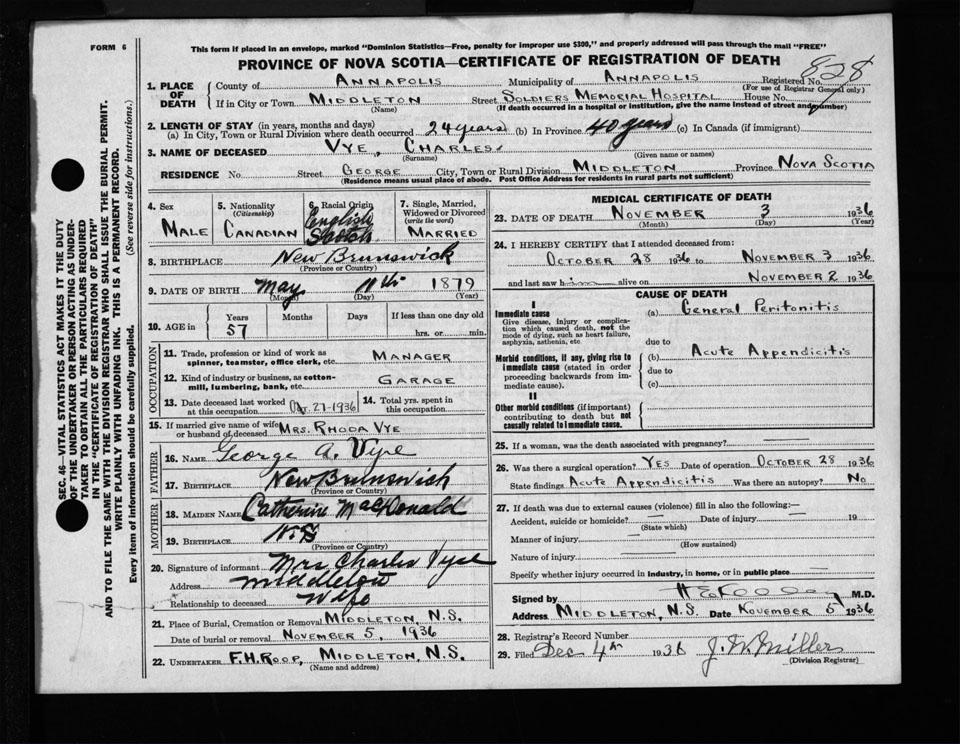 FORM 6
This form if placed in an envelope, marked "Dominion Statistics—Free, penalty for improper use $300," and properly addressed will pass through the mail "FREE"
PROVINCE OF NOVA SCOTIA—CERTIFICATE OF REGISTRATION OF DEATH
828
1. PLACE OF DEATH
County of ANNAPOLIS Municipality of ANNAPOLIS Registered No.
(For use of Registrar General only)
If in City or Town MIDDLETON Street SOLDIERS MEMORIAL HOSPITAL House No.
(Name) (If death occurred in a hospital or institution, give the name instead of street and number)
2. LENGTH OF STAY (in years, months and days)
(a) In City, Town or Rural Division where death occurred 24 years (b) In Province 40 years (c) In Canada (if immigrant)
3. NAME OF DECEASED VYE, CHARLES
(Surname) (Given name or names)
RESIDENCE No. Street GEORGE City, Town or Rural Division MIDDLETON Province NOVA SCOTIA
(Residence means usual place of abode. Post Office Address for residents in rural parts not sufficient)
SEC. 46—VITAL STATISTICS ACT MAKES IT THE DUTY
OF THE UNDERTAKER OR PERSON ACTING AS UNDERTAKER
TO OBTAIN ALL THE PARTICULARS REQUIRED
IN THE "CERTIFICATE OF REGISTRATION OF DEATH"
AND TO FILE THE SAME WITH THE DIVISION REGISTRAR WHO SHALL ISSUE THE BURIAL PERMIT.
WRITE PLAINLY WITH UNFADING INK. THIS IS A PERMANENT RECORD.
Every item of information should be carefully supplied. (See reverse side for instructions.)
4. Sex MALE
5. Nationality (Citizenship) CANADIAN
6. Racial Origin English Scotch
7. Single, Married, Widowed or Divorced (write the word) MARRIED
8. BIRTHPLACE New Brunswick
(Province or Country)
9. DATE OF BIRTH May 11th 1879
(Month) (Day) (Year)
10. AGE in Years Months Days If less than one day old
57 hrs. or min.
OCCUPATION
11. Trade, profession or kind of work as spinner, teamster, office clerk, etc. MANAGER
12. Kind of industry or business, as cotton-mill, lumbering, bank, etc. GARAGE
13. Date deceased last worked at this occupation Oct. 27-1936
14. Total yrs. spent in this occupation
15. If married give name of wife or husband of deceased MRS. RHODA VYE
FATHER
16. NAME George A. Vye
17. BIRTHPLACE New Brunswick
(Province or Country)
MOTHER
18. MAIDEN NAME Catherine MacDonald
19. BIRTHPLACE N.B
(Province or Country)
20. Signature of informant Mrs Charles Vye
Address Middleton
Relationship to deceased Wife
21. Place of Burial, Cremation or Removal MIDDLETON, N.S.
Date of burial or removal NOVEMBER 5, 1936
22. UNDERTAKER F.H. ROOP, MIDDLETON, N.S.
(Name and address)
MEDICAL CERTIFICATE OF DEATH
23. DATE OF DEATH NOVEMBER 3 1936
(Month) (Day) (Year)
24. I HEREBY CERTIFY that I attended deceased from:
OCTOBER 28 1936 to NOVEMBER 3 1936
and last saw him alive on NOVEMBER 2 1936
CAUSE OF DEATH
I
Immediate cause
Give disease, injury or complication which caused death, not the mode of dying, such as heart failure, asphyxia, asthenia, etc.
(a) General Peritonitis
due to
Morbid conditions, if any, giving rise to immediate cause (stated in order proceeding backwards from immediate cause).
(b) Acute Appendicitis
due to
(c)
II
Other morbid conditions (if important) contributing to death but not causally related to immediate cause.
25. If a woman, was the death associated with pregnancy?
26. Was there a surgical operation? YES Date of operation OCTOBER 28 1936
State findings Acute Appendicitis Was there an autopsy? No
27. If death was due to external causes (violence) fill in also the following:—
Accident, suicide or homicide? Date of injury 19
(State which)
Manner of injury
(How sustained)
Nature of injury
Specify whether injury occurred in industry, in home, or in public place
Signed by M.D.
Address MIDDLETON, N.S. Date NOVEMBER 5 1936
28. Registrar's Record Number
29. Filed Dec 4th 1936 J. W. Miller
(Division Registrar)